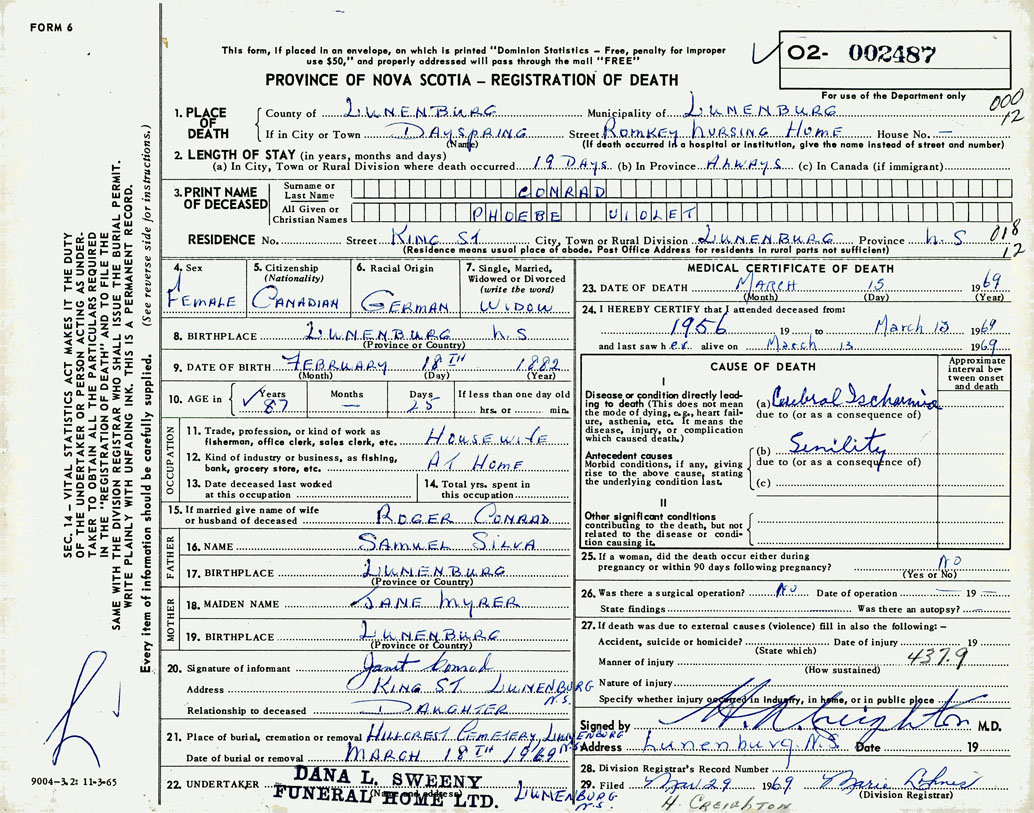 FORM 6
This form, if placed in an envelope, on which is printed "Dominion Statistics – Free, penalty for improper
use $50," and properly addressed will pass through the mail "FREE"
PROVINCE OF NOVA SCOTIA – REGISTRATION OF DEATH
02- 002487
For use of the Department only
000
12
1. PLACE OF DEATH
County of LUNENBURG Municipality of LUNENBURG
If in City or Town DAYSPRING Street ROMKEY NURSING HOME House No. –
(Name) (If death occurred in a hospital or institution, give the name instead of street and number)
2. LENGTH OF STAY (in years, months and days)
(a) In City, Town or Rural Division where death occurred 19 DAYS (b) In Province ALWAYS (c) In Canada (if immigrant)
3. PRINT NAME OF DECEASED
Surname or Last Name CONRAD
All Given or Christian Names PHOEBE VIOLET
RESIDENCE No. Street KING ST City, Town or Rural Division LUNENBURG Province N.S
(Residence means usual place of abode. Post Office Address for residents in rural parts not sufficient)
018
12
4. Sex
FEMALE
5. Citizenship (Nationality)
CANADIAN
6. Racial Origin
GERMAN
7. Single, Married, Widowed or Divorced (write the word)
WIDOW
8. BIRTHPLACE LUNENBURG N.S
(Province or Country)
9. DATE OF BIRTH FEBRUARY 18TH 1882
(Month) (Day) (Year)
10. AGE in Years 87 Months — Days 25 If less than one day old hrs. or min.
OCCUPATION
11. Trade, profession, or kind of work as fisherman, office clerk, sales clerk, etc. HOUSEWIFE
12. Kind of industry or business, as fishing, bank, grocery store, etc. AT HOME
13. Date deceased last worked at this occupation
14. Total yrs. spent in this occupation
15. If married give name of wife or husband of deceased ROGER CONRAD
FATHER
16. NAME SAMUEL SILVA
17. BIRTHPLACE LUNENBURG
(Province or Country)
MOTHER
18. MAIDEN NAME JANE MYRER
19. BIRTHPLACE LUNENBURG
(Province or Country)
20. Signature of informant Janet Conrad
Address KING ST LUNENBURG N.S.
Relationship to deceased DAUGHTER
21. Place of burial, cremation or removal HILLCREST CEMETERY, LUNENBURG N.S
Date of burial or removal MARCH 18TH 1969
22. UNDERTAKER DANA L. SWEENY
FUNERAL HOME LTD. LUNENBURG N.S.
(Name and address)
MEDICAL CERTIFICATE OF DEATH
23. DATE OF DEATH MARCH 15 1969
(Month) (Day) (Year)
24. I HEREBY CERTIFY that I attended deceased from:
1956 19 to March 13 1969
and last saw her alive on March 13 1969
CAUSE OF DEATH
Approximate interval between onset and death
I
Disease or condition directly leading to death (This does not mean the mode of dying, e.g., heart failure, asthenia, etc. It means the disease, injury, or complication which caused death.)
(a) Cerebral Ischaemia
due to (or as a consequence of)
Antecedent causes
Morbid conditions, if any, giving rise to the above cause, stating the underlying condition last.
(b) Senility
due to (or as a consequence of)
(c)
II
Other significant conditions contributing to the death, but not related to the disease or condition causing it.
25. If a woman, did the death occur either during pregnancy or within 90 days following pregnancy? NO
(Yes or No)
26. Was there a surgical operation? No Date of operation — 19 —
State findings Was there an autopsy? —
27. If death was due to external causes (violence) fill in also the following: –
Accident, suicide or homicide? Date of injury 19
(State which)
Manner of injury 437.9
(How sustained)
Nature of injury
Specify whether injury occurred in industry, in home, or in public place
Signed by H. A. Creighton M.D.
Address Lunenburg, N.S. Date 19
28. Division Registrar's Record Number
29. Filed Mar 29 1969 Marie
(Division Registrar)
H. CREIGHTON
SEC. 14 – VITAL STATISTICS ACT MAKES IT THE DUTY
OF THE UNDERTAKER OR PERSON ACTING AS UNDER-
TAKER TO OBTAIN ALL THE PARTICULARS REQUIRED
IN THE "REGISTRATION OF DEATH" AND TO FILE THE
SAME WITH THE DIVISION REGISTRAR WHO SHALL ISSUE THE BURIAL PERMIT.
WRITE PLAINLY WITH UNFADING INK. THIS IS A PERMANENT RECORD.
Every item of information should be carefully supplied. (See reverse side for instructions.)
9004–3.2: 11-3-65